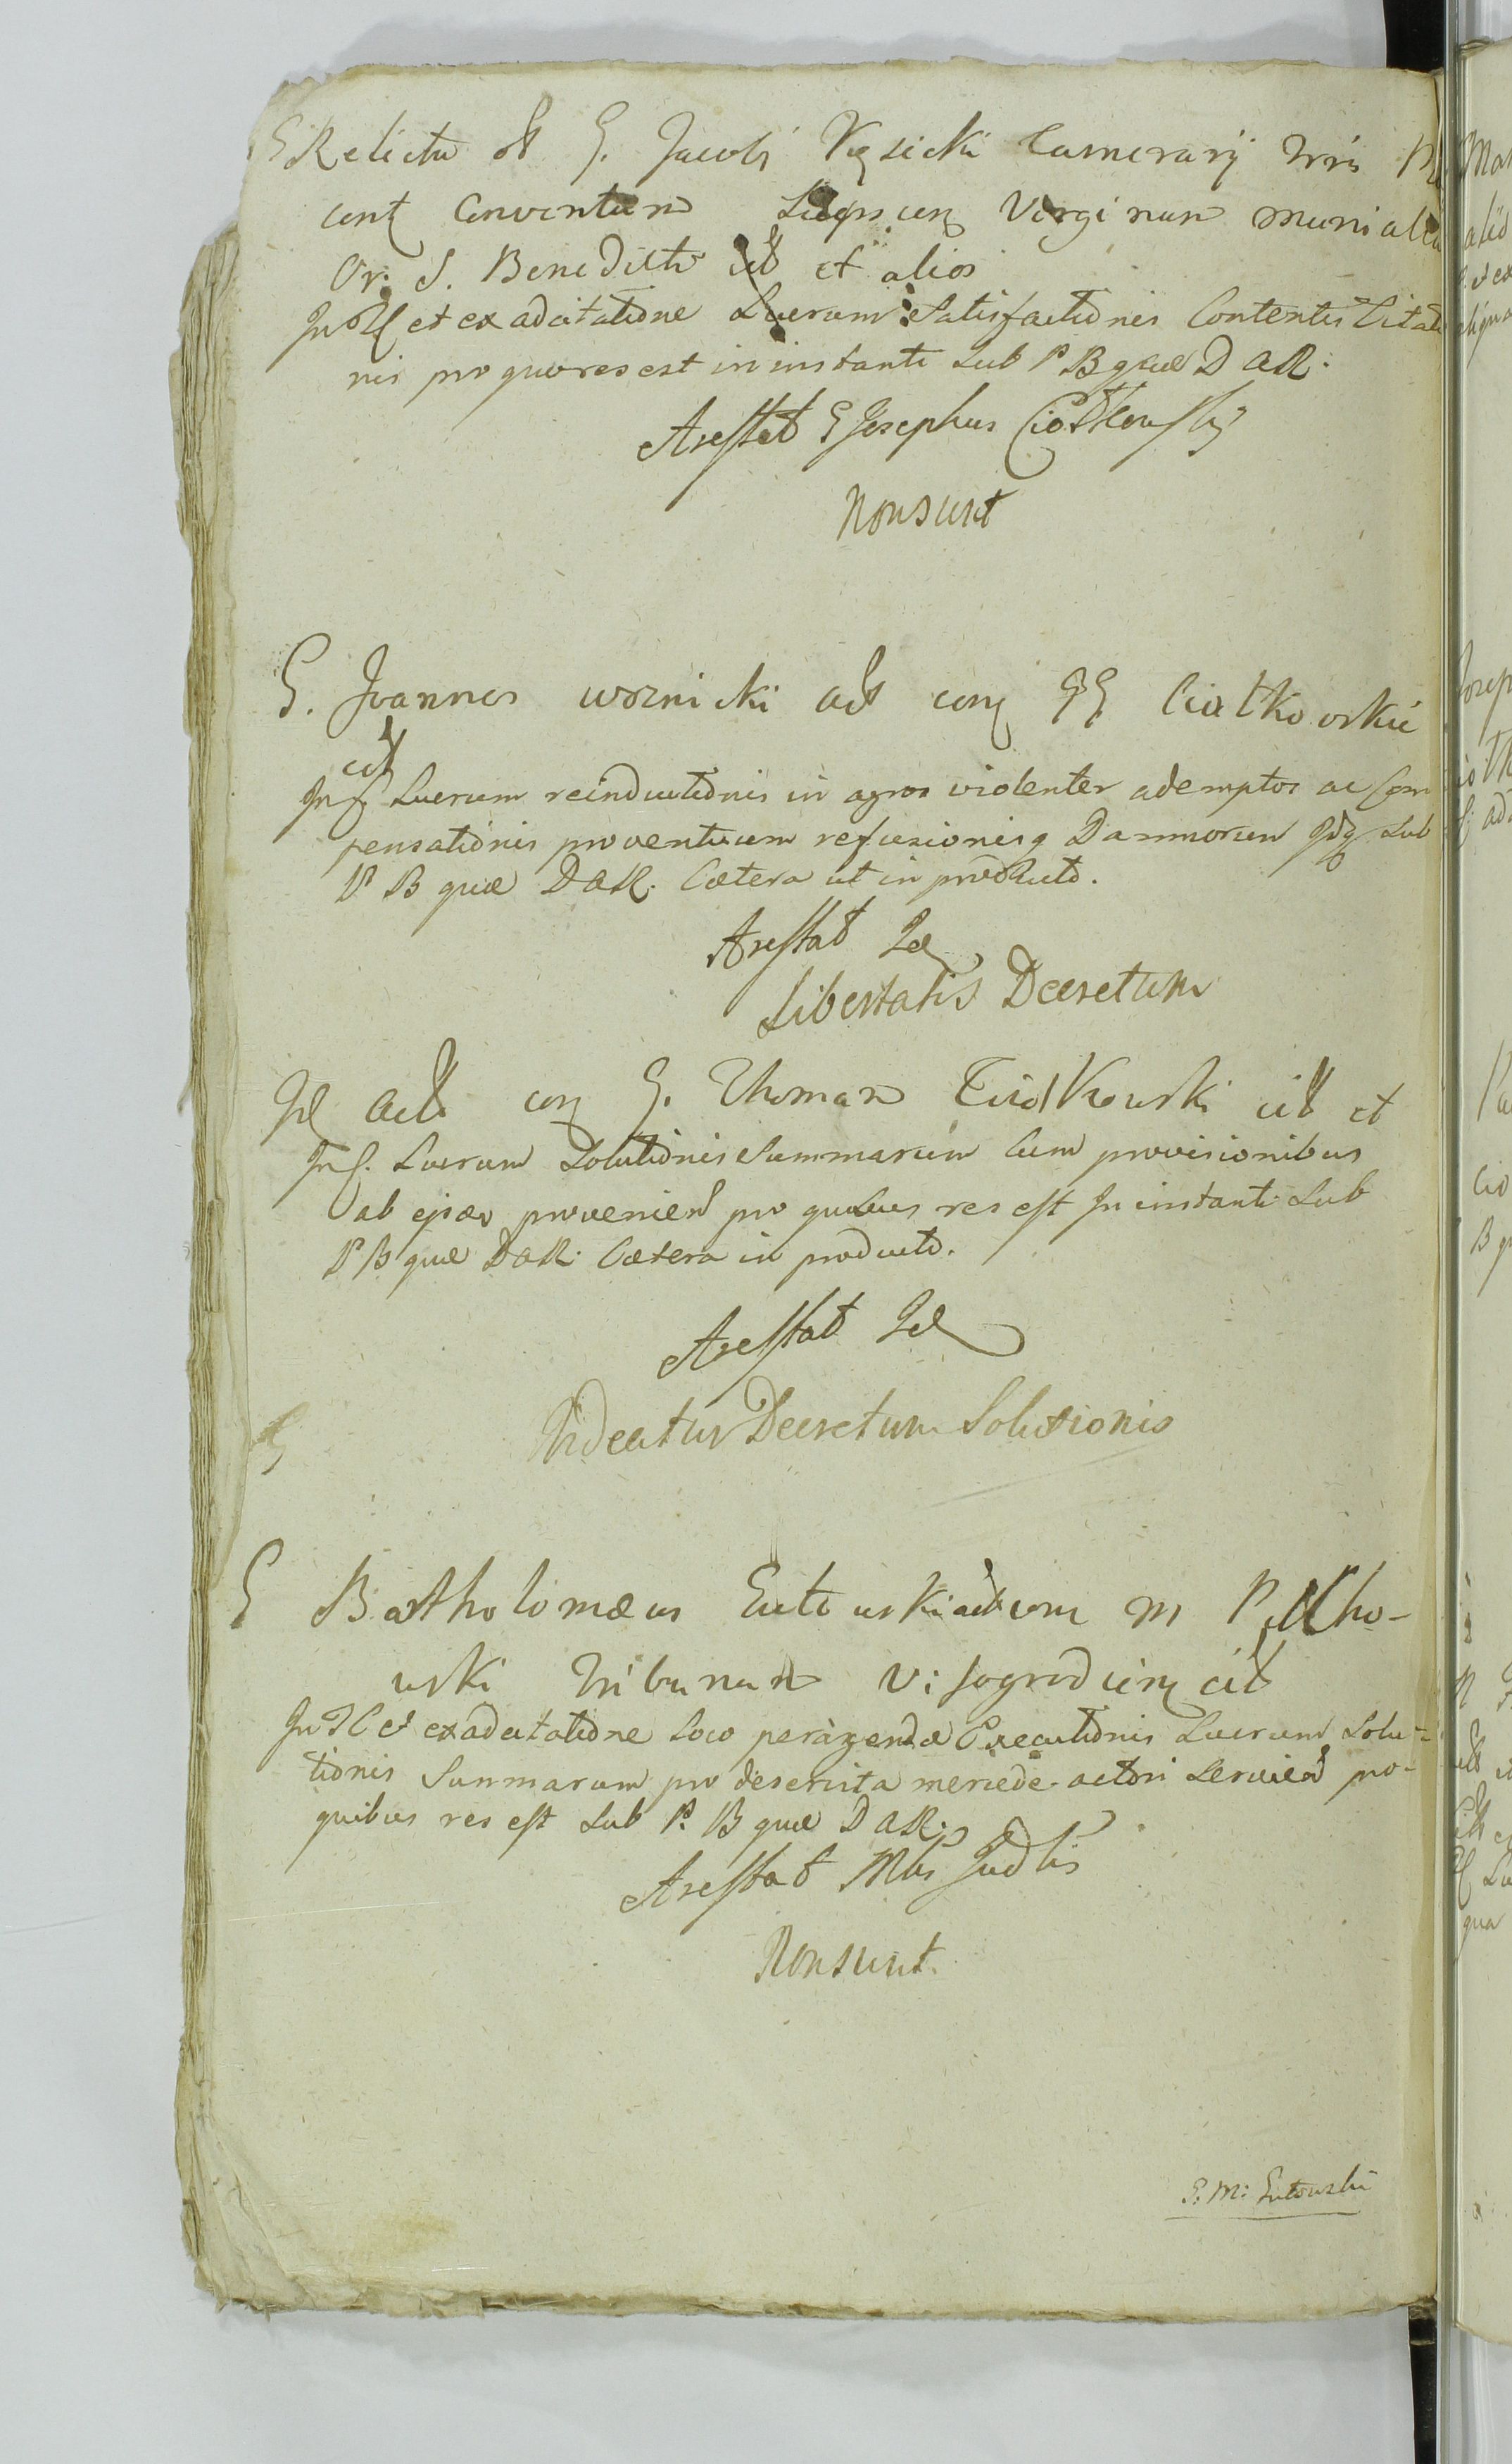 G Relicta ol G. Jacobi Kęsicki Camerarij Trris
cont Conventum Virginum monialium
Or. S. Benedicti cit et alios
In Tl et ex adcitatione Lucrum Satisfactionis Contentis Citatio
nis pro quo res est in instanti sub P B quæ D aR.
Arestat G Josephus Ciołkowski
Non sunt
G. Joannes woznicki act con GG Ciołkowskie
cit
In f. Lucrum reinductionis in agros violenter ademptos ac Com
pensationis proventuum refusionisq Damnorum Idq sub
P B quæ D aR. Cætera ut in producto.
Arestat Id
Libertatis Decretum
Id act con G. Thomam Ciołkowski cit et
In f. Lucrum Solutionis Summarum Cum provisionibus
ab ejsdem provenien pro quibus res est In instanti sub
P B quæ D aR. Cætera in producto.
Arestat Id
Videatur Decretum Solutionis
G Bartholomæus Gutowski act con M Pilicho-
wski Tribunum Visogrodien cit
In Tl et ex adcitatione loco peragendæ Executionis Lucrum Solu-
tionis Summarum pro deservita mercede actori servien pro-
quibus res est sub P. B quæ D aR.
Arestat Mtis Judlis
Non sunt.
G. M: Gutowski